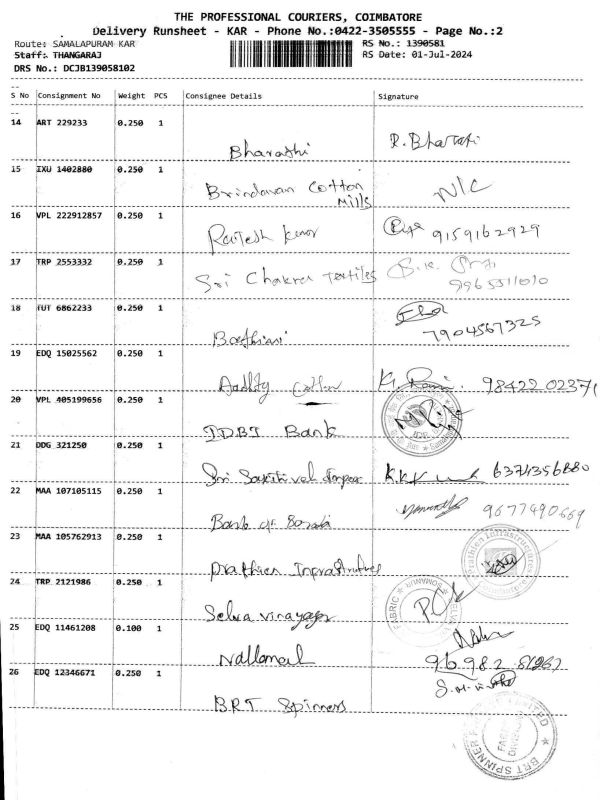 THE PROFESSIONAL COURIERS, COIMBATORE
Delivery Runsheet - KAR - Phone No.:0422-3505555 - Page No.:2
Route: SAMALAPURAM KAR RS No.: 1390581
Staff: THANGARAJ RS Date: 01-Jul-2024
DRS No.: DCJB139058102
S No Consignment No Weight PCS Consignee Details Signature
14 ART 229233 0.250 1
Bharathi R. Bharati
15 IXU 1402880 0.250 1
Brindavan Cotton Mills N/C
16 VPL 222912857 0.250 1
Rajesh kumar 9159162929
17 TRP 2553332 0.250 1
Sri Chakra Textiles
9965311010
18 TUT 6862233 0.250 1
7904567325
19 EDQ 15025562 0.250 1
Cotton K. Rani. 98422 02371
20 VPL 405199656 0.250 1
IDBI Bank
21 DDG 321250 0.250 1
Sri Sakthivel 6374356880
22 MAA 107105115 0.250 1
Bank of Baroda 9677490669
23 MAA 105762913 0.250 1
24 TRP 2121986 0.250 1
Selva vinayaga
FABRIC
25 EDQ 11461208 0.100 1
26 EDQ 12346671 0.250 1
BRT Spinners
BRT SPINNER